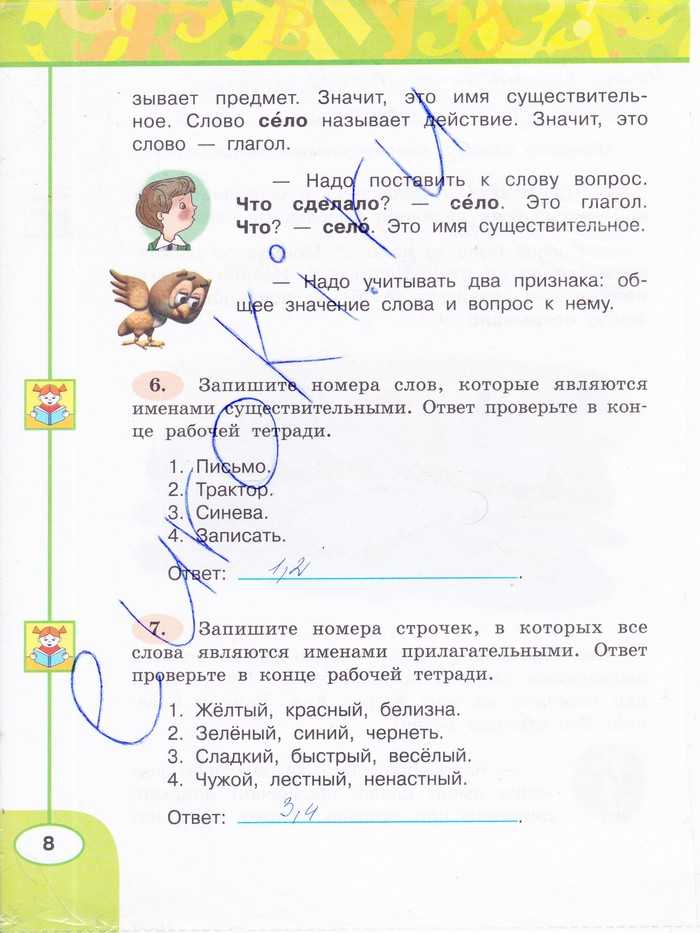 зывает предмет. Значит, это имя существитель-
ное. Слово се́ло называет действие. Значит, это
слово — глагол.
— Надо поставить к слову вопрос.
Что сделало? — се́ло. Это глагол.
Что? — село́. Это имя существительное.
— Надо учитывать два признака: об-
щее значение слова и вопрос к нему.
6. Запишите номера слов, которые являются
именами существительными. Ответ проверьте в кон-
це рабочей тетради.
1. Письмо.
2. Трактор.
3. Синева.
4. Записать.
Ответ: 1,2.
7. Запишите номера строчек, в которых все
слова являются именами прилагательными. Ответ
проверьте в конце рабочей тетради.
1. Жёлтый, красный, белизна.
2. Зелёный, синий, чернеть.
3. Сладкий, быстрый, весёлый.
4. Чужой, лестный, ненастный.
Ответ: 3,4.
8